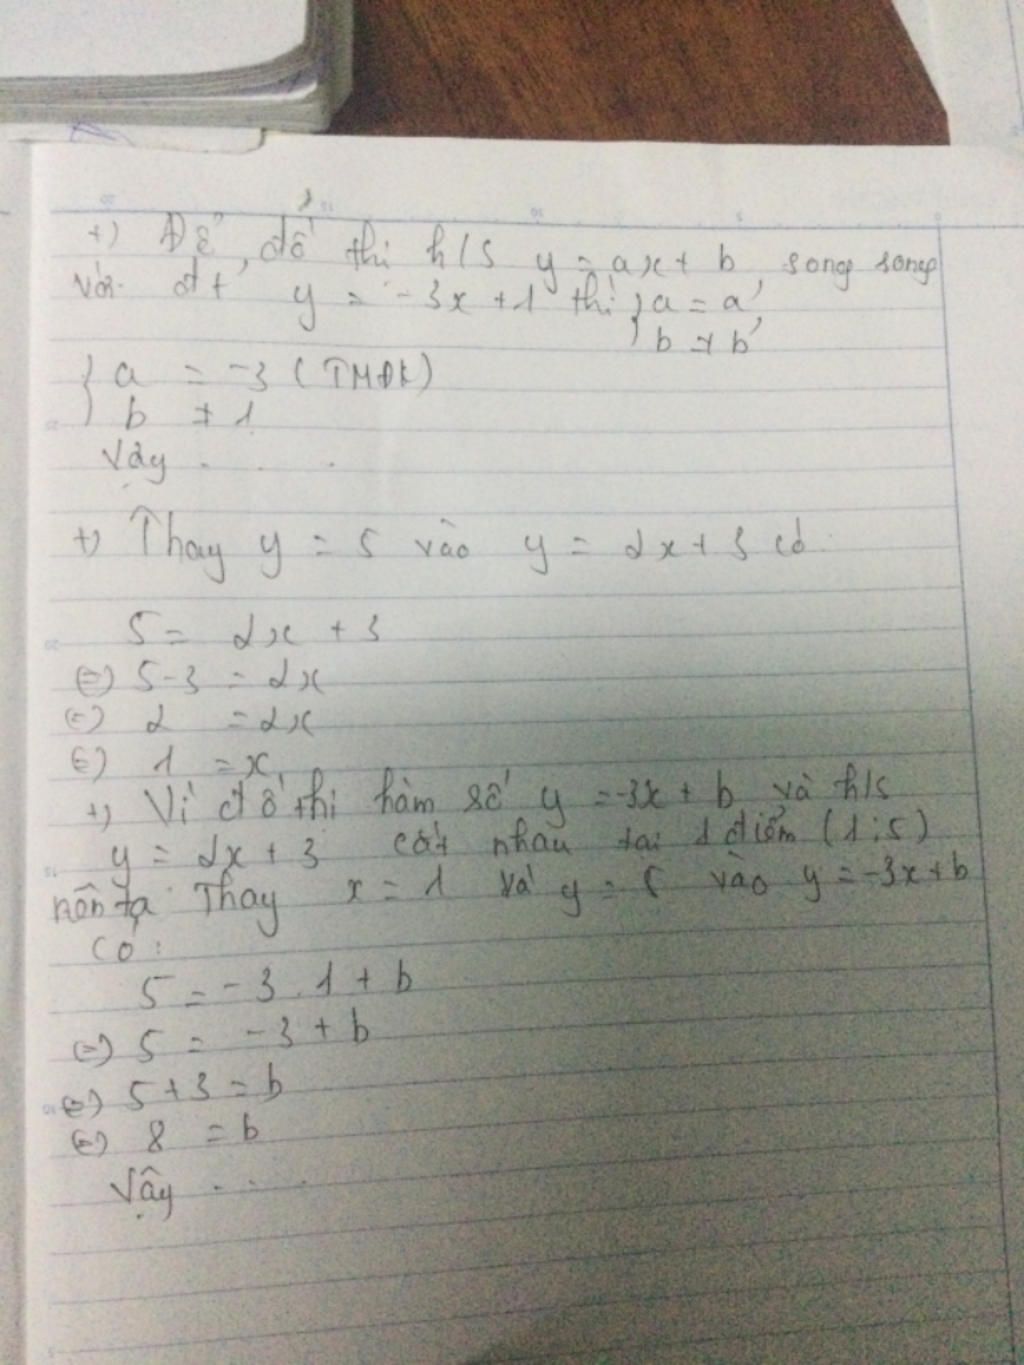 +) Để đồ thị h/s y = ax + b song song
với đt y = -3x + 1 thì { a = a'
b ≠ b'
{ a = -3 (TMĐK)
b ≠ 1
Vậy . . .
+) Thay y = 5 vào y = 2x + 3 có
5 = 2x + 3
(=) 5 - 3 = 2x
(=) 2 = 2x
(=) 1 = x
+) Vì đồ thị hàm số y = -3x + b và h/s
y = 2x + 3 cắt nhau tại 1 điểm (1;5)
nên ta Thay x = 1 và y = 5 vào y = -3x + b
có:
5 = -3.1 + b
(=) 5 = -3 + b
(=) 5 + 3 = b
(=) 8 = b
Vậy . . .